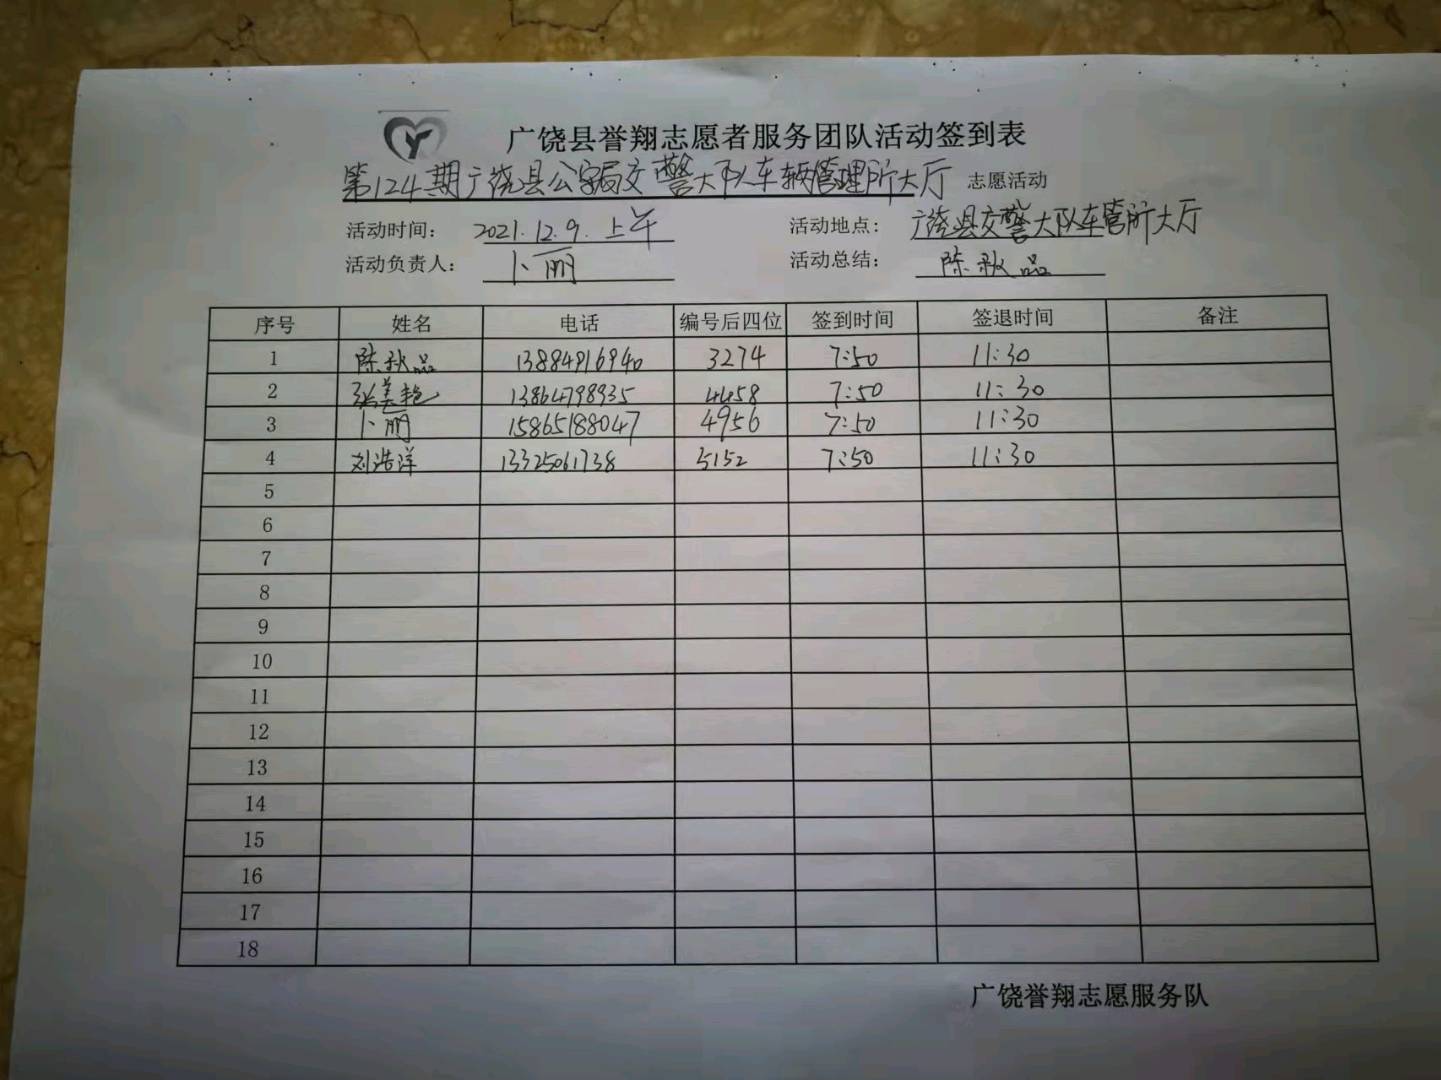 广饶县誉翔志愿者服务团队活动签到表
第124期广饶县公安局交警大队车辆管理所大厅 志愿活动
活动时间： 2021.12.9.上午 活动地点： 广饶县交警大队车管所大厅
活动负责人： 卜丽 活动总结： 陈秋品
序号 姓名 电话 编号后四位 签到时间 签退时间 备注
1 陈秋品 13884916940 3274 7:50 11:30
2 张美艳 13864798935 4458 7:50 11:30
3 卜丽 15865188047 4956 7:50 11:30
4 刘浩洋 13325061738 5152 7:50 11:30
5
6
7
8
9
10
11
12
13
14
15
16
17
18
广饶誉翔志愿服务队